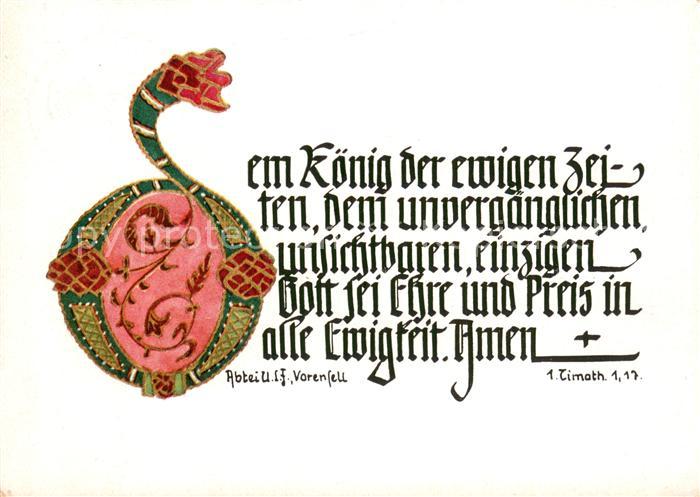 Dem König der ewigen Zei-
ten, dem unvergänglichen,
unsichtbaren, einzigen
Gott sei Ehre und Preis in
alle Ewigkeit. Amen +
Abtei U.l.F., Varensell
1. Timoth. 1, 17.